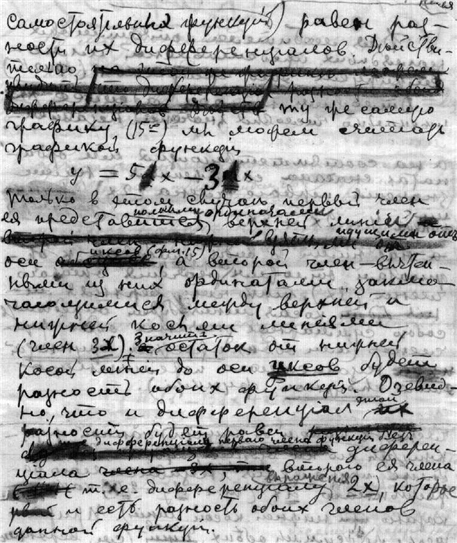 самостоятельных функций) равен раз-
ности их диференциалов. Действи-
тельно
эту же самую
графику (15ю) мы можем считать
графикой функции
y = 5x − 3x
только в этом случае первый член
ея представится полными ординатами верхней линии
оси иксов (фиг. 15), а второй член — вычтен-
ными из них ординатами, заклю-
чающимися между верхней и
нижней косыми линиями
(член 3x). Значит остаток от нижней
косой линии до оси иксов будет
разность обоих функций. Очевид-
но, что и диференциал этой
разности будет равен
диференциалу первого члена функции без диферен-
циала второго ея члена
(т. е. диференциалу выражения 2x), которое
и есть разность обоих членов
данной функции.